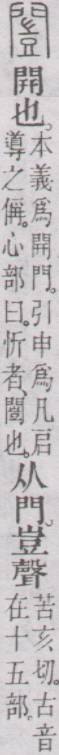 闓開也。本義爲開門。引申爲凡启導之偁。心部曰。忻者闓也。从門。豈聲。苦亥切。古音在十五部。